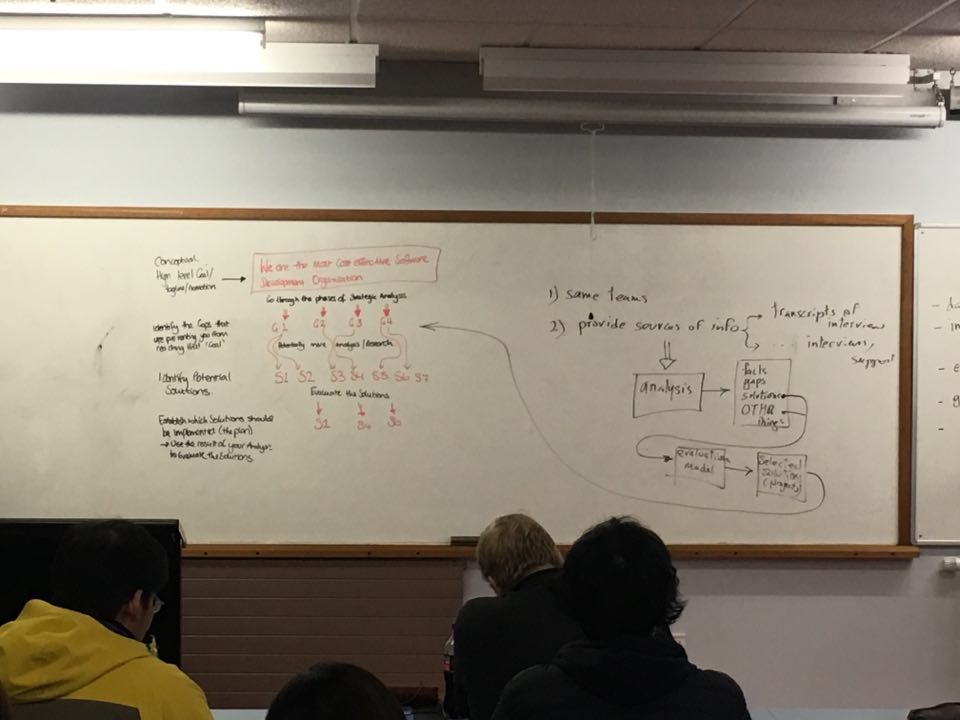 Conceptual
High Level Goal/
tagline/
We are the Most Cost effective Software
Development Organisation
Go through the phases of Strategic Analysis
G1 G2 G3 G4
Identify the Gaps that
are preventing you from
reaching that "Goal"
Potentially more Analysis/Research
Identify Potential
Solutions.
S1 S2 S3 S4 S5 S6 S7
Evaluate the Solutions
Establish which Solutions should
be implemented (the plan)
→ Use the result of your Analysis
to Evaluate the Solutions.
S2 S4 S6
1) same teams
2) provide sources of info
transcripts of
interview
... interviews,
support
analysis
facts
gaps
solutions
OTHER
things
evaluation
model
selected
solutions
(projects)